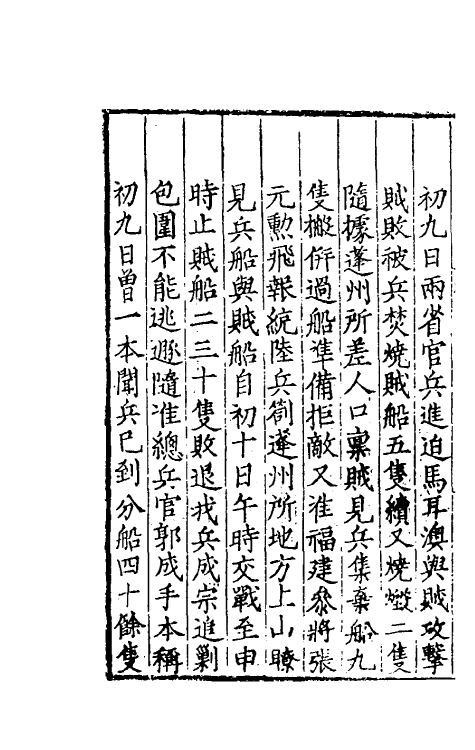 初九日兩省官兵進迫馬耳澳與賊攻擊
賊敗被兵焚燒賊船五隻續又燒燬二隻
隨據蓬州所差人口稟賊見兵集棄船九
隻擬併過船準備拒敵又准福建叅將張
元勲飛報統陸兵劄蓬州所地方上山瞭
見兵船與賊船自初十日午時交戰至申
時止賊船二三十隻敗退我兵成宗追剿
包圍不能逃遯隨准總兵官郭成手本稱
初九日曾一本聞兵已到分船四十餘隻